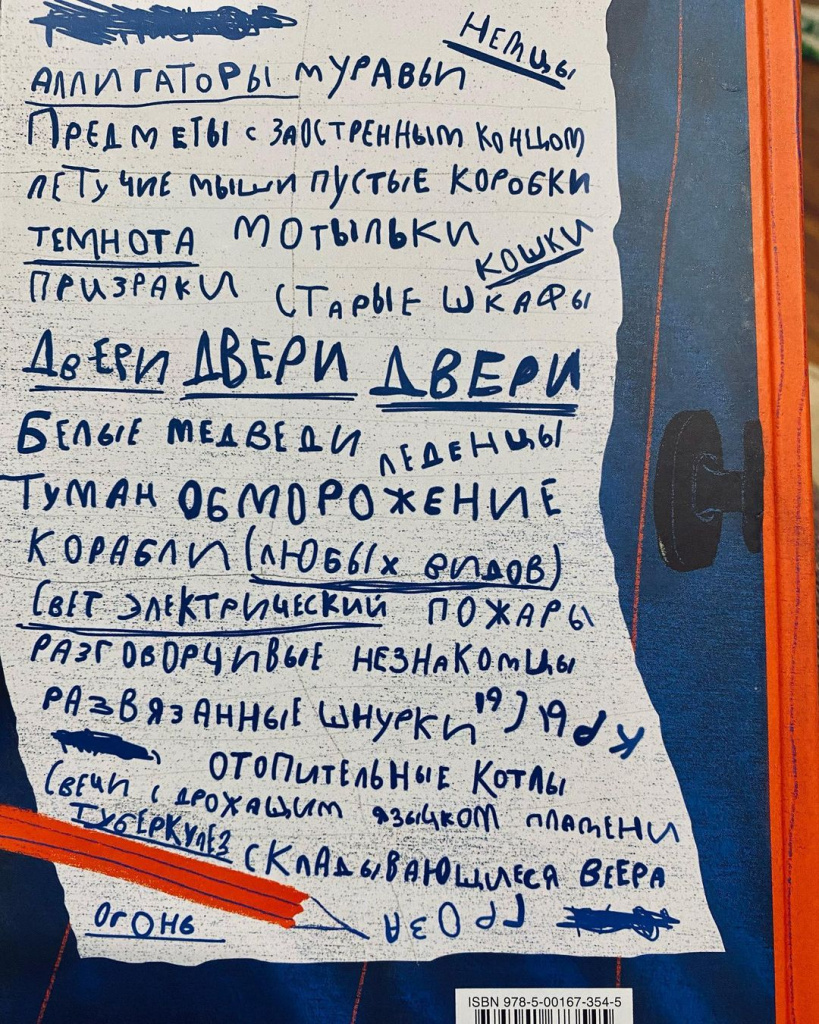 НЕМЦЫ
АЛЛИГАТОРЫ МУРАВЬИ
ПРЕДМЕТЫ С ЗАОСТРЕННЫМ КОНЦОМ
ЛЕТУЧИЕ МЫШИ ПУСТЫЕ КОРОБКИ
ТЕМНОТА МОТЫЛЬКИ
КОШКИ
ПРИЗРАКИ СТАРЫЕ ШКАФЫ
ДВЕРИ ДВЕРИ ДВЕРИ
БЕЛЫЕ МЕДВЕДИ ЛЕДЕНЦЫ
ТУМАН ОБМОРОЖЕНИЕ
КОРАБЛИ (ЛЮБЫХ ВИДОВ)
СВЕТ ЭЛЕКТРИЧЕСКИЙ ПОЖАРЫ
РАЗГОВОРЧИВЫЕ НЕЗНАКОМЦЫ
РАЗВЯЗАННЫЕ ШНУРКИ КРЫСЫ
ОТОПИТЕЛЬНЫЕ КОТЛЫ
СВЕЧИ С ДРОЖАЩИМ ЯЗЫЧКОМ ПЛАМЕНИ
ТУБЕРКУЛЕЗ
СКЛАДЫВАЮЩИЕСЯ ВЕЕРА
ОГОНЬ ГРОЗА
ISBN 978-5-00167-354-5